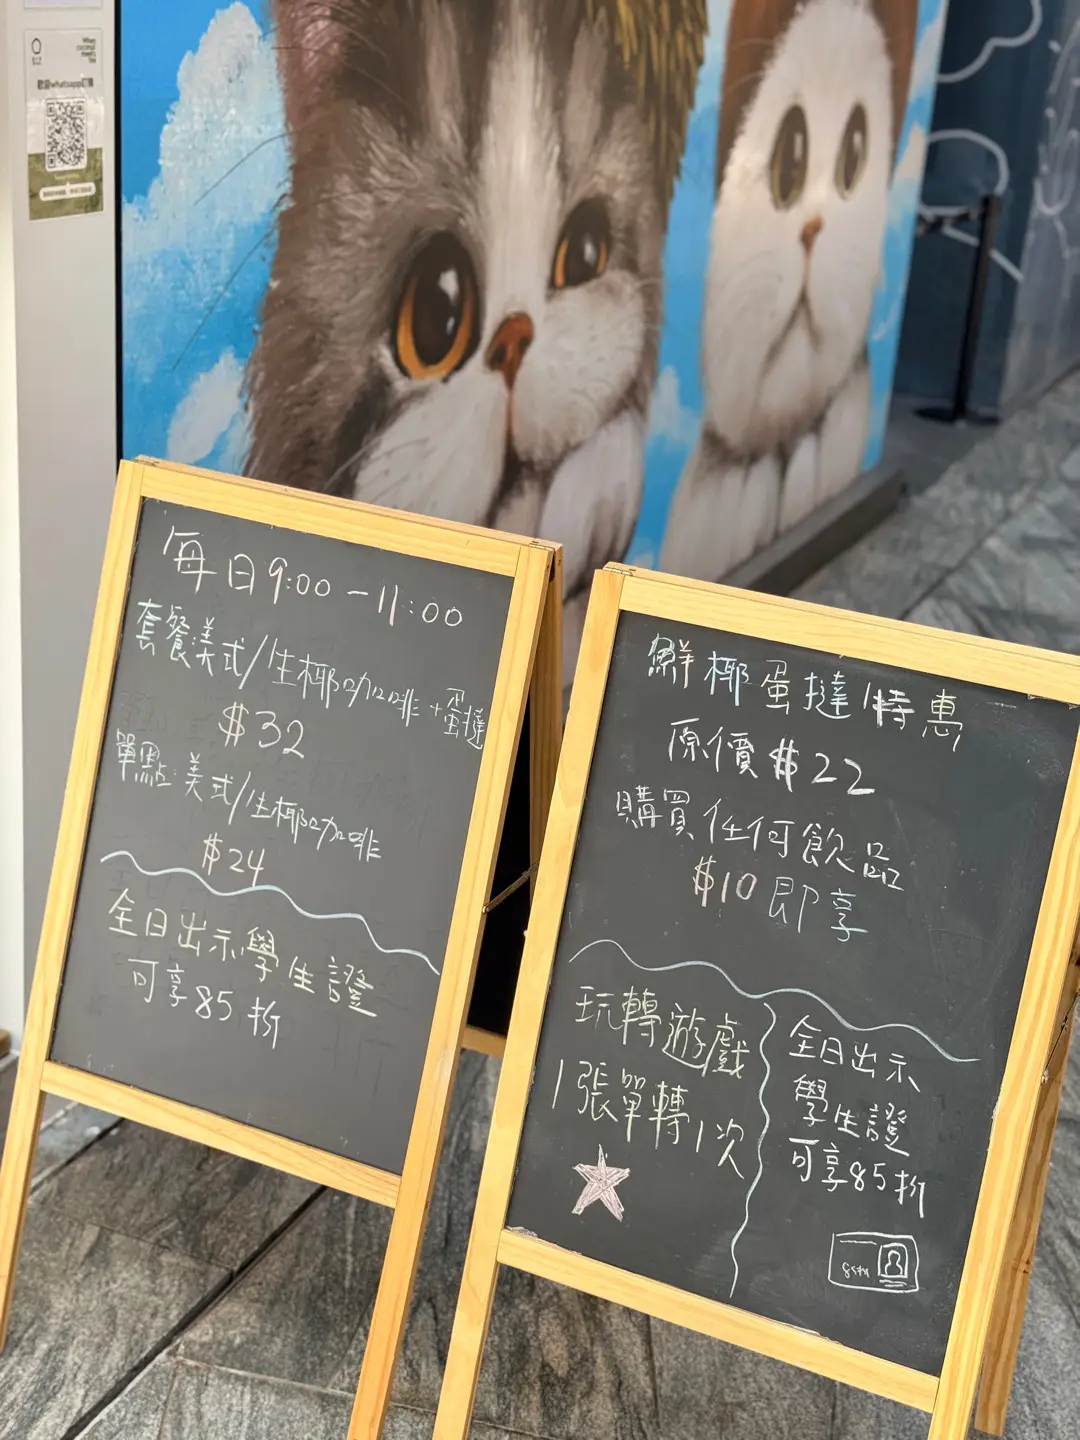 When
coconut
meets
tea
歡迎whatsapp訂購
每日9:00-11:00
套餐美式/生椰咖啡+蛋撻
$32
單點:美式/生椰咖啡
$24
全日出示學生證
可享85折
鮮椰蛋撻特惠
原價$22
購買任何飲品
$10即享
玩轉遊戲
1張單轉1次
全日出示
學生證
可享85折